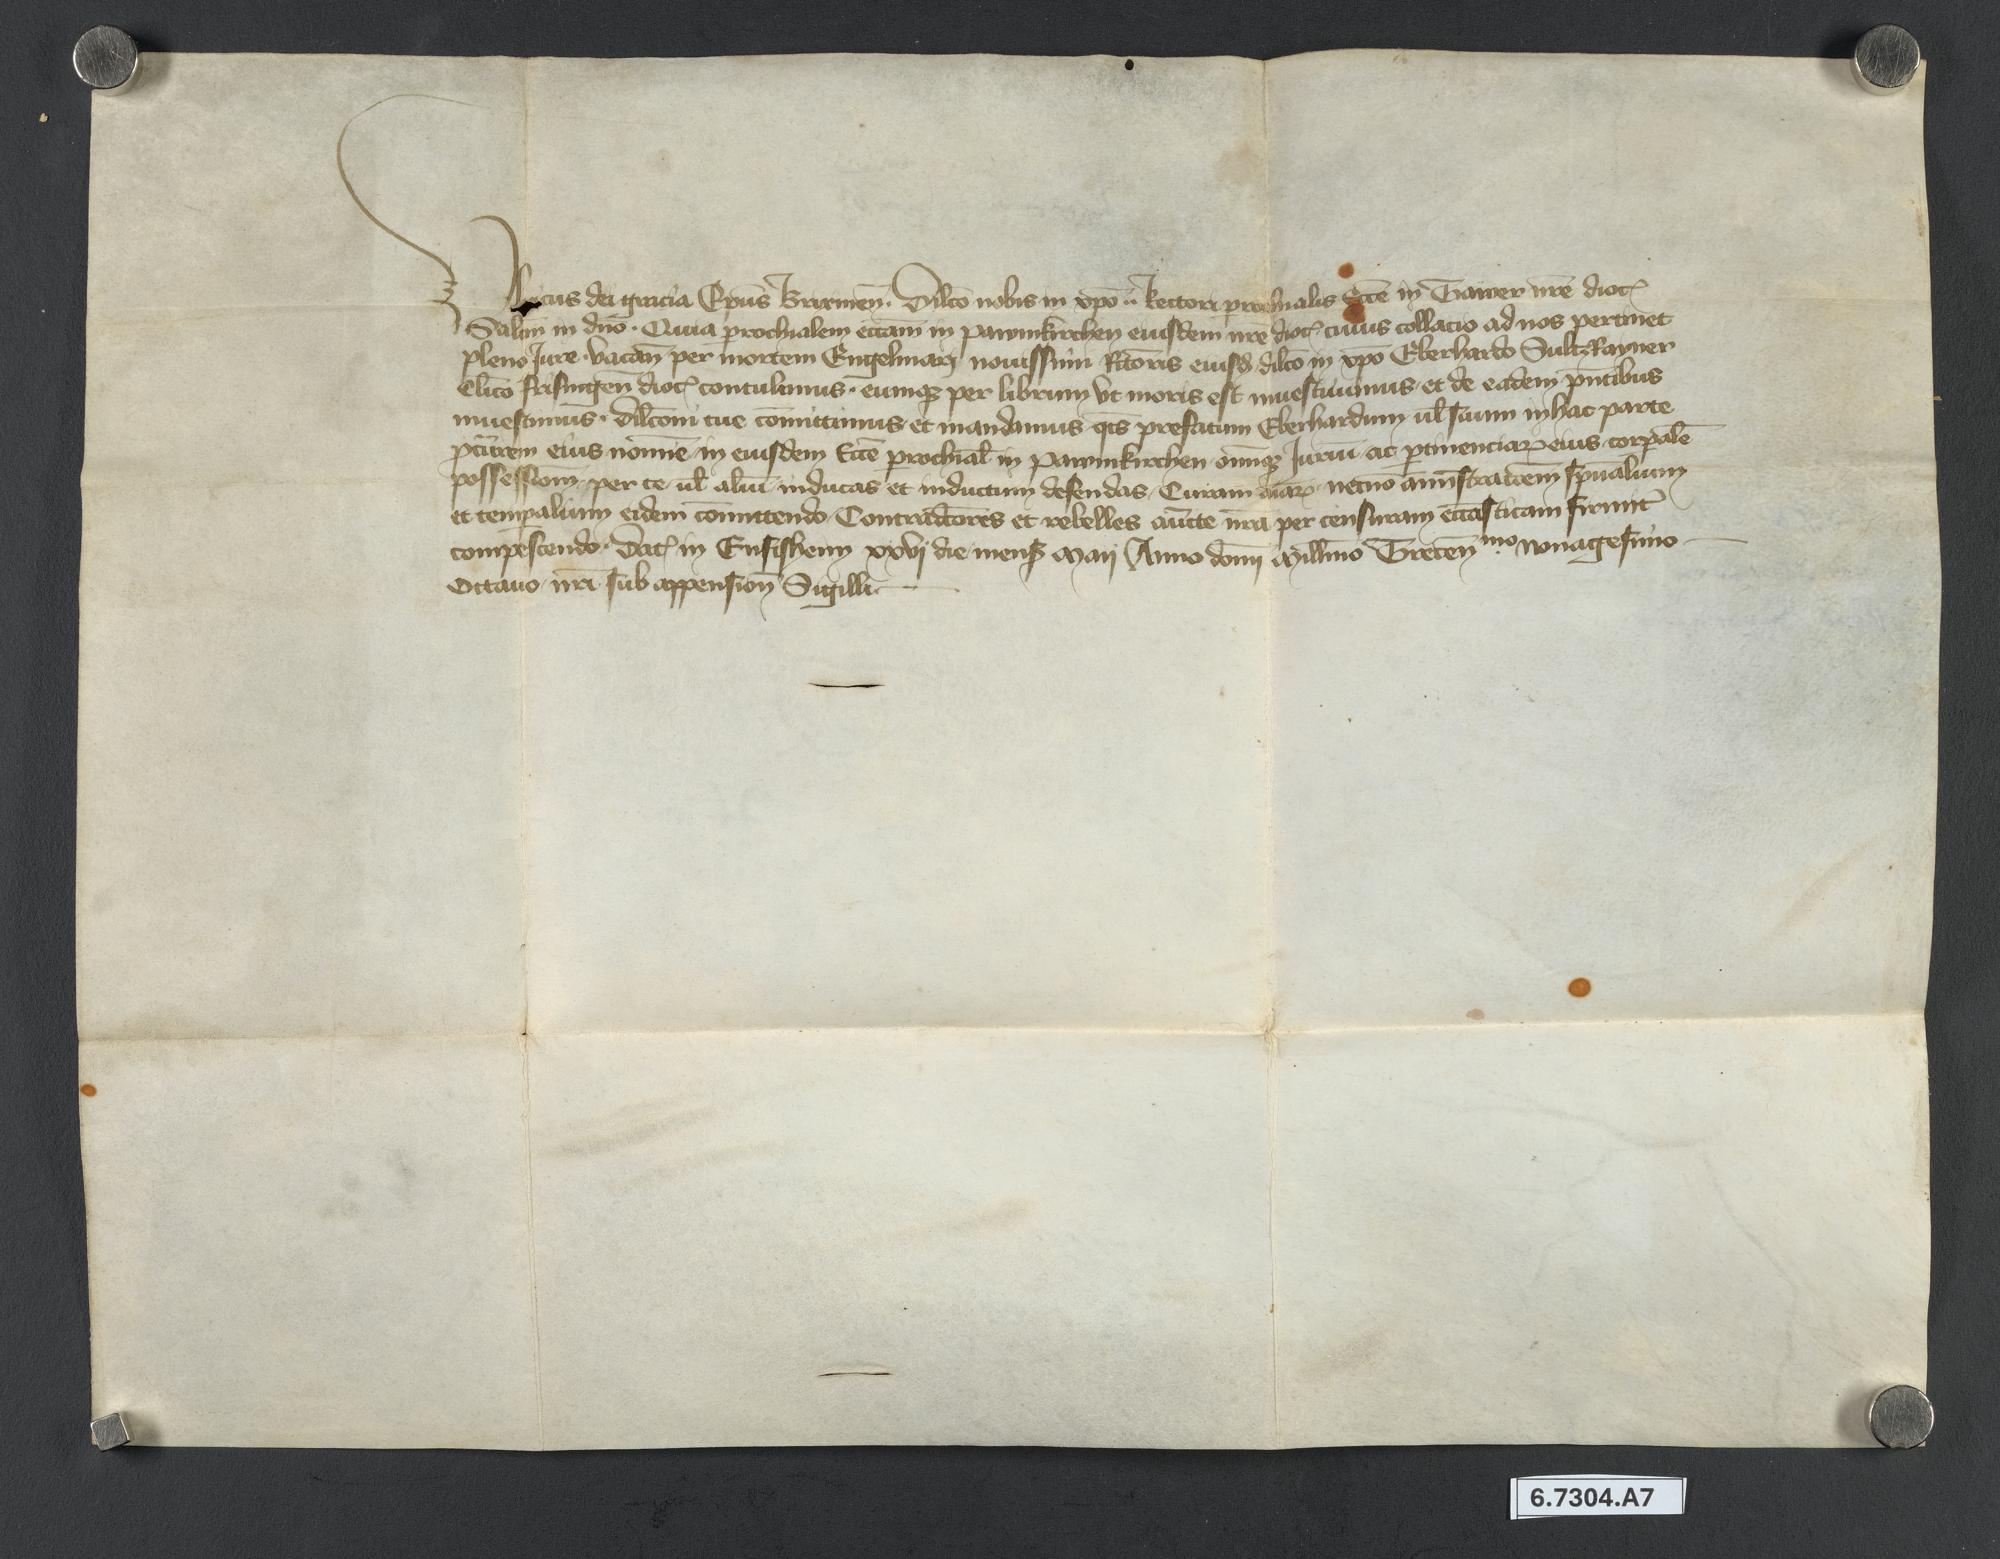 Ulricus dei gracia Ep̄us Brixineñ. Dilc̄o nobis in xp̄o .. Rectori prochialis Ecc̄e in Tawer nr̄e dioc̄
Salm̄ in dn̄o. Quia prochialem ecc̄iam in Pawmkirchen eiusdem nr̄e dioc̄ cuius collacio ad nos pertinet
pleno Jure. vacan̄ per mortem Engelmari nouissimi Rc̄oris eiusd̄ dilc̄o in xp̄o Eberhardo Sultzkayner
Clico frisingeñ dioc̄ contulimus. eumqʒ per librum vt moris est inuestiuimus et de eadem pn̄tibus
inuestimus. Dilc̄oni tue com̄ittimus et mandamus qt̄s prefatum Eberhardum ul̄ suum in hac parte
pc̄urem eius noīne in eiusdem Ecc̄e prochial̄ in Pawmkirchen om̄iqʒ Juriū ac ptinenciaꝝ eius corpalē
possessiom̄ per te ul̄ aliū inducas et inductum defendas. Curam aīaꝝ necno am̄istrac̄oem sp̄ualium
et tempalium eidem com̄ittendo. Contradc̄ores et rebelles auc̄te nr̄a per censuram ecc̄asticam firmit̄
compescendo. Dat̄ in Ensisheim xxvi die mens̄ Maij Anno domī Millm̄o Trecen̄ mo nonagesimo
Octauo nr̄i sub appension̄ Sigilli.
6.7304.A7